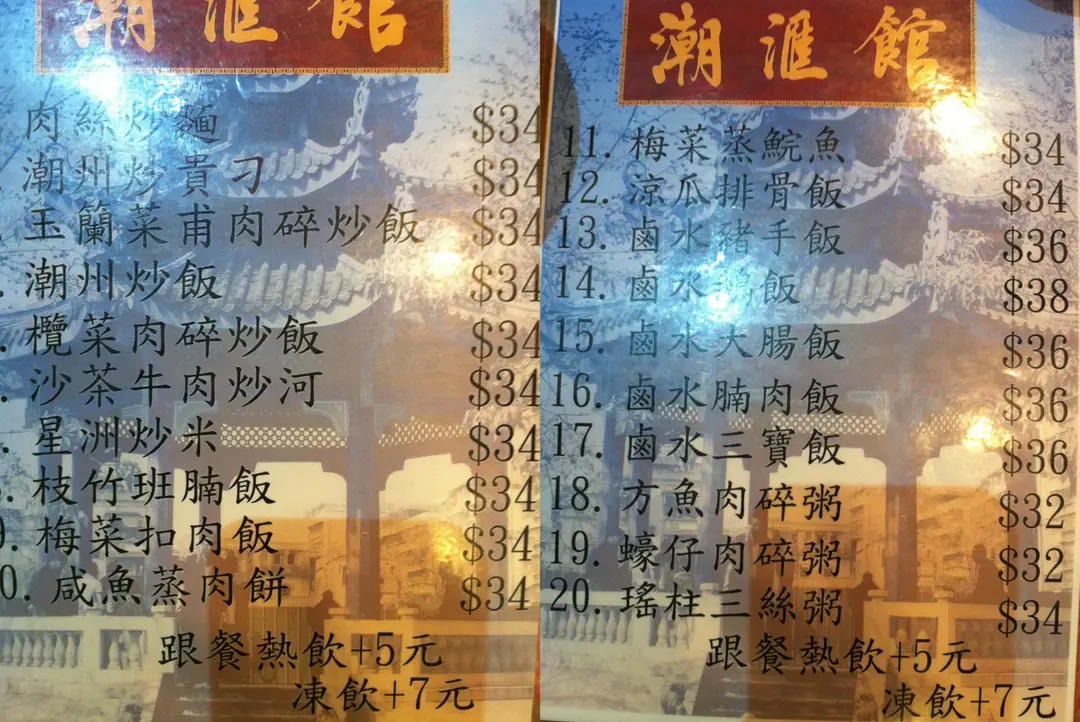 潮滙館
肉絲炒麵 $34
潮州炒貴刁 $34
玉蘭菜甫肉碎炒飯 $34
潮州炒飯 $34
欖菜肉碎炒飯 $34
沙茶牛肉炒河 $34
星洲炒米 $34
枝竹班腩飯 $34
9. 梅菜扣肉飯 $34
0. 咸魚蒸肉餅 $34
跟餐熱飲+5元
凍飲+7元
潮滙館
11. 梅菜蒸鯇魚 $34
12. 涼瓜排骨飯 $34
13. 鹵水豬手飯 $36
14. 鹵水飯 $38
15. 鹵水大腸飯 $36
16. 鹵水腩肉飯 $36
17. 鹵水三寶飯 $36
18. 方魚肉碎粥 $32
19. 蠔仔肉碎粥 $32
20. 瑤柱三絲粥 $34
跟餐熱飲+5元
凍飲+7元